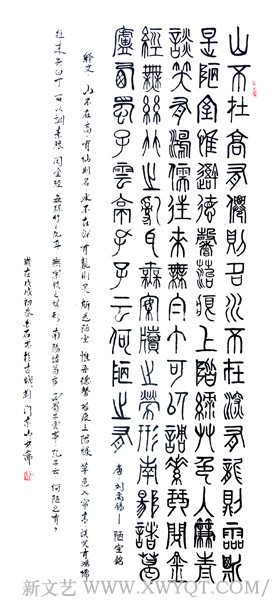 山不在高有僊則名水不在深有龍則靈斯
是陋室惟吾德馨苔痕上階綠艸色入簾青
談笑有鴻儒往來無白丁可以調素琴閱金
經無絲竹之亂耳無案牘之勞形南陽諸葛
廬西蜀子雲亭孔子云何陋之有
唐 刘禹锡——陋室铭
释文 山不在高有仙则名 水不在深有龙则灵 斯是陋室 惟吾德馨 苔痕上阶绿 草色入帘青 谈笑有鸿儒
往来无白丁 可以调素琴 阅金经 无丝竹之乱耳 无案牍之劳形 南阳诸葛庐 西蜀子云亭 孔子云 何陋之有
岁在戊戌初春 於古城荆门东山
新文艺 WWW.XWYQT.COM/